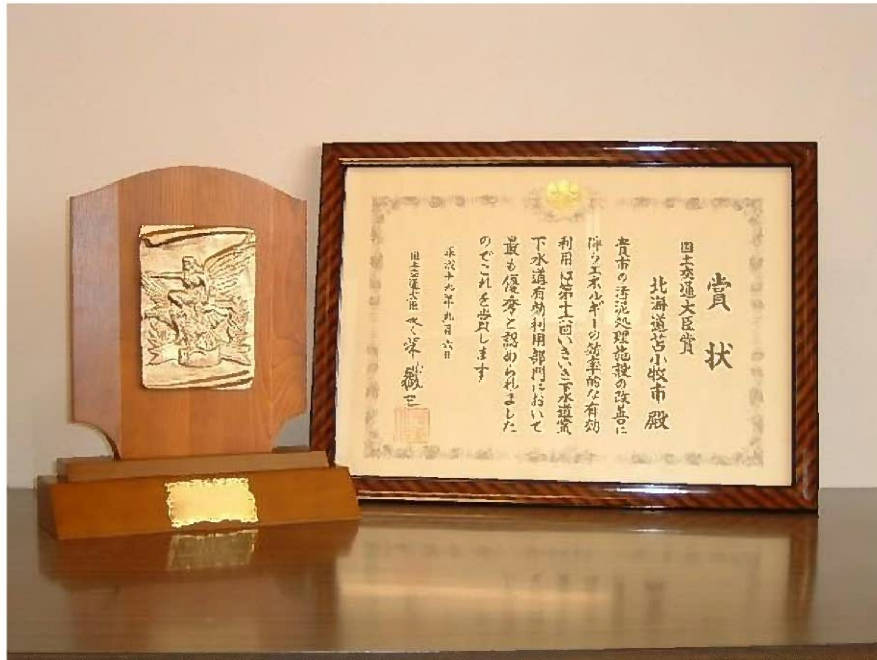 賞状
国土交通大臣賞
北海道苫小牧市殿
貴市の汚泥処理施設の改善に
伴うエネルギーの効率的な有効
利用は第十六回いきいき下水道賞
下水道有効利用部門において
最も優秀と認められました
のでこれを賞します
平成十九年九月六日
国土交通大臣 冬柴鐵三